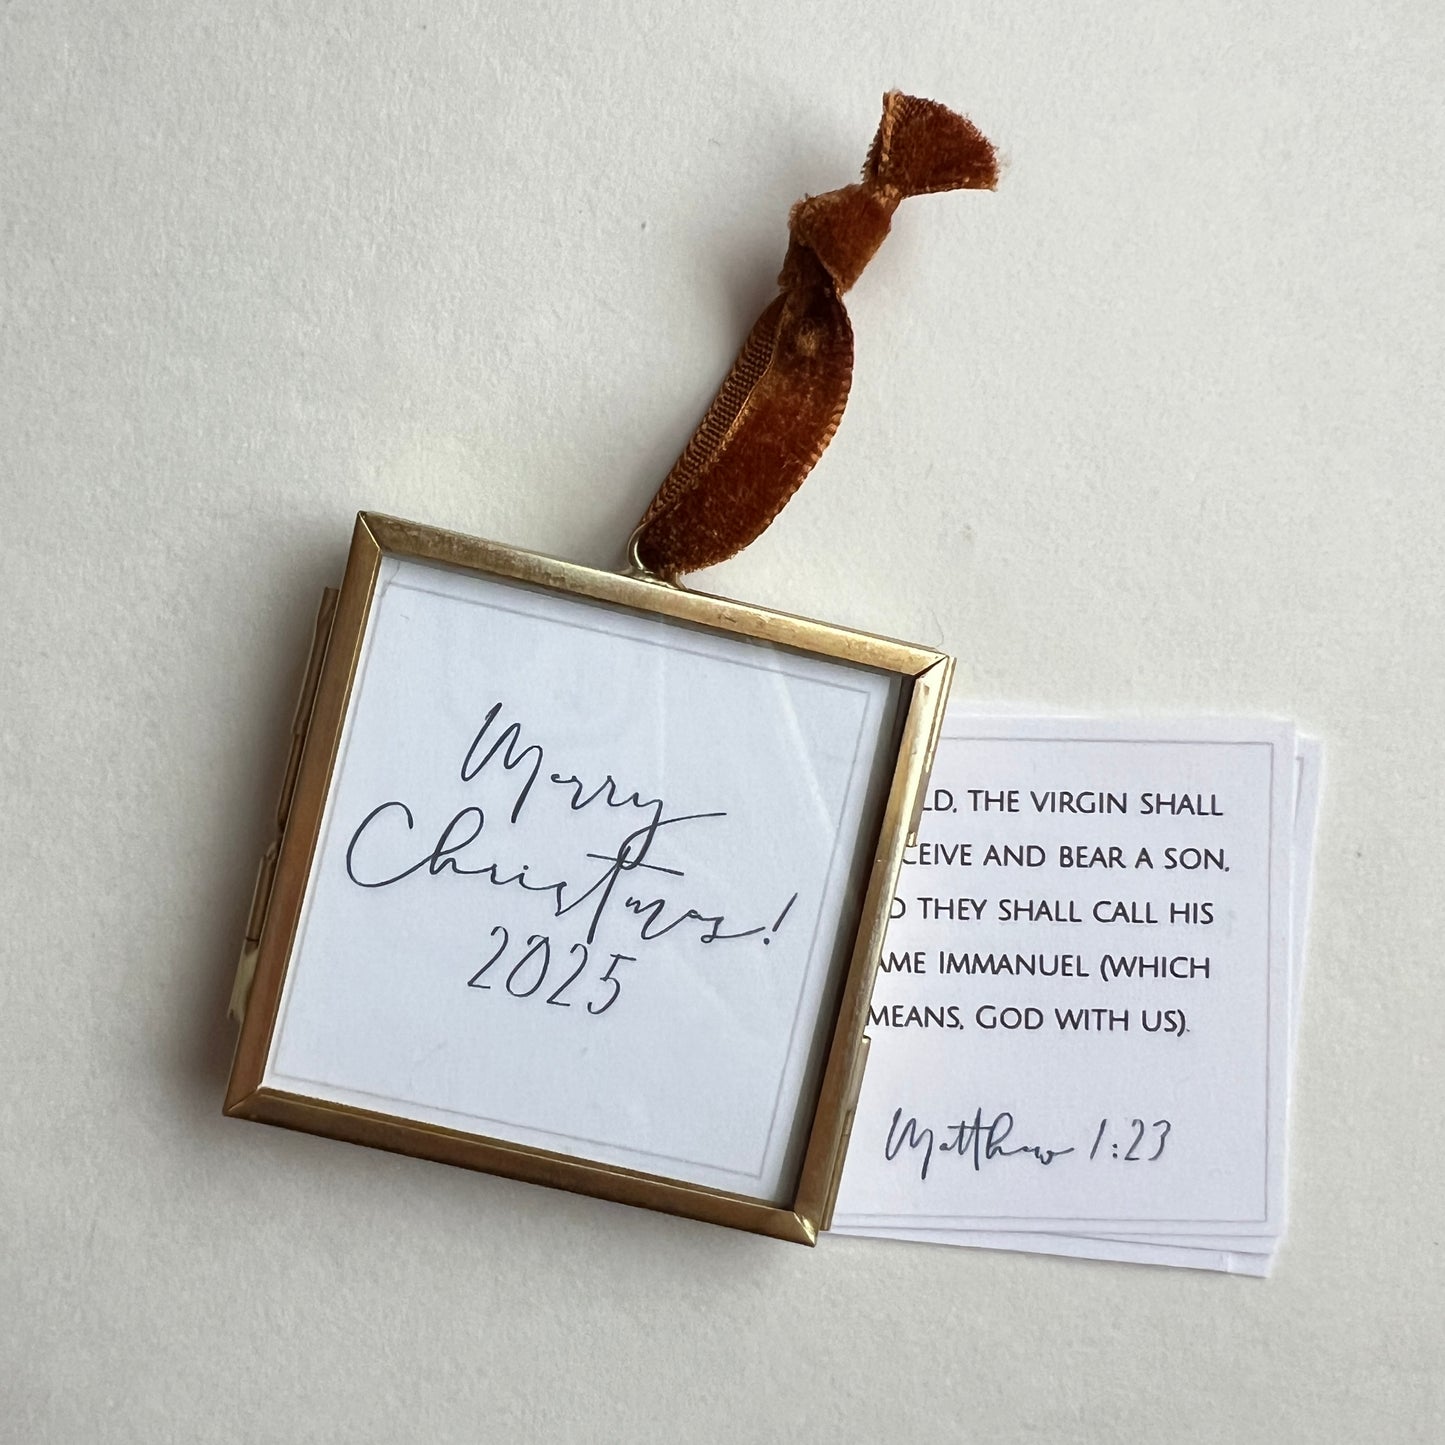 Merry
Christmas!
2025
LD, THE VIRGIN SHALL
CEIVE AND BEAR A SON,
D THEY SHALL CALL HIS
AME IMMANUEL (WHICH
MEANS, GOD WITH US).
Matthew 1:23